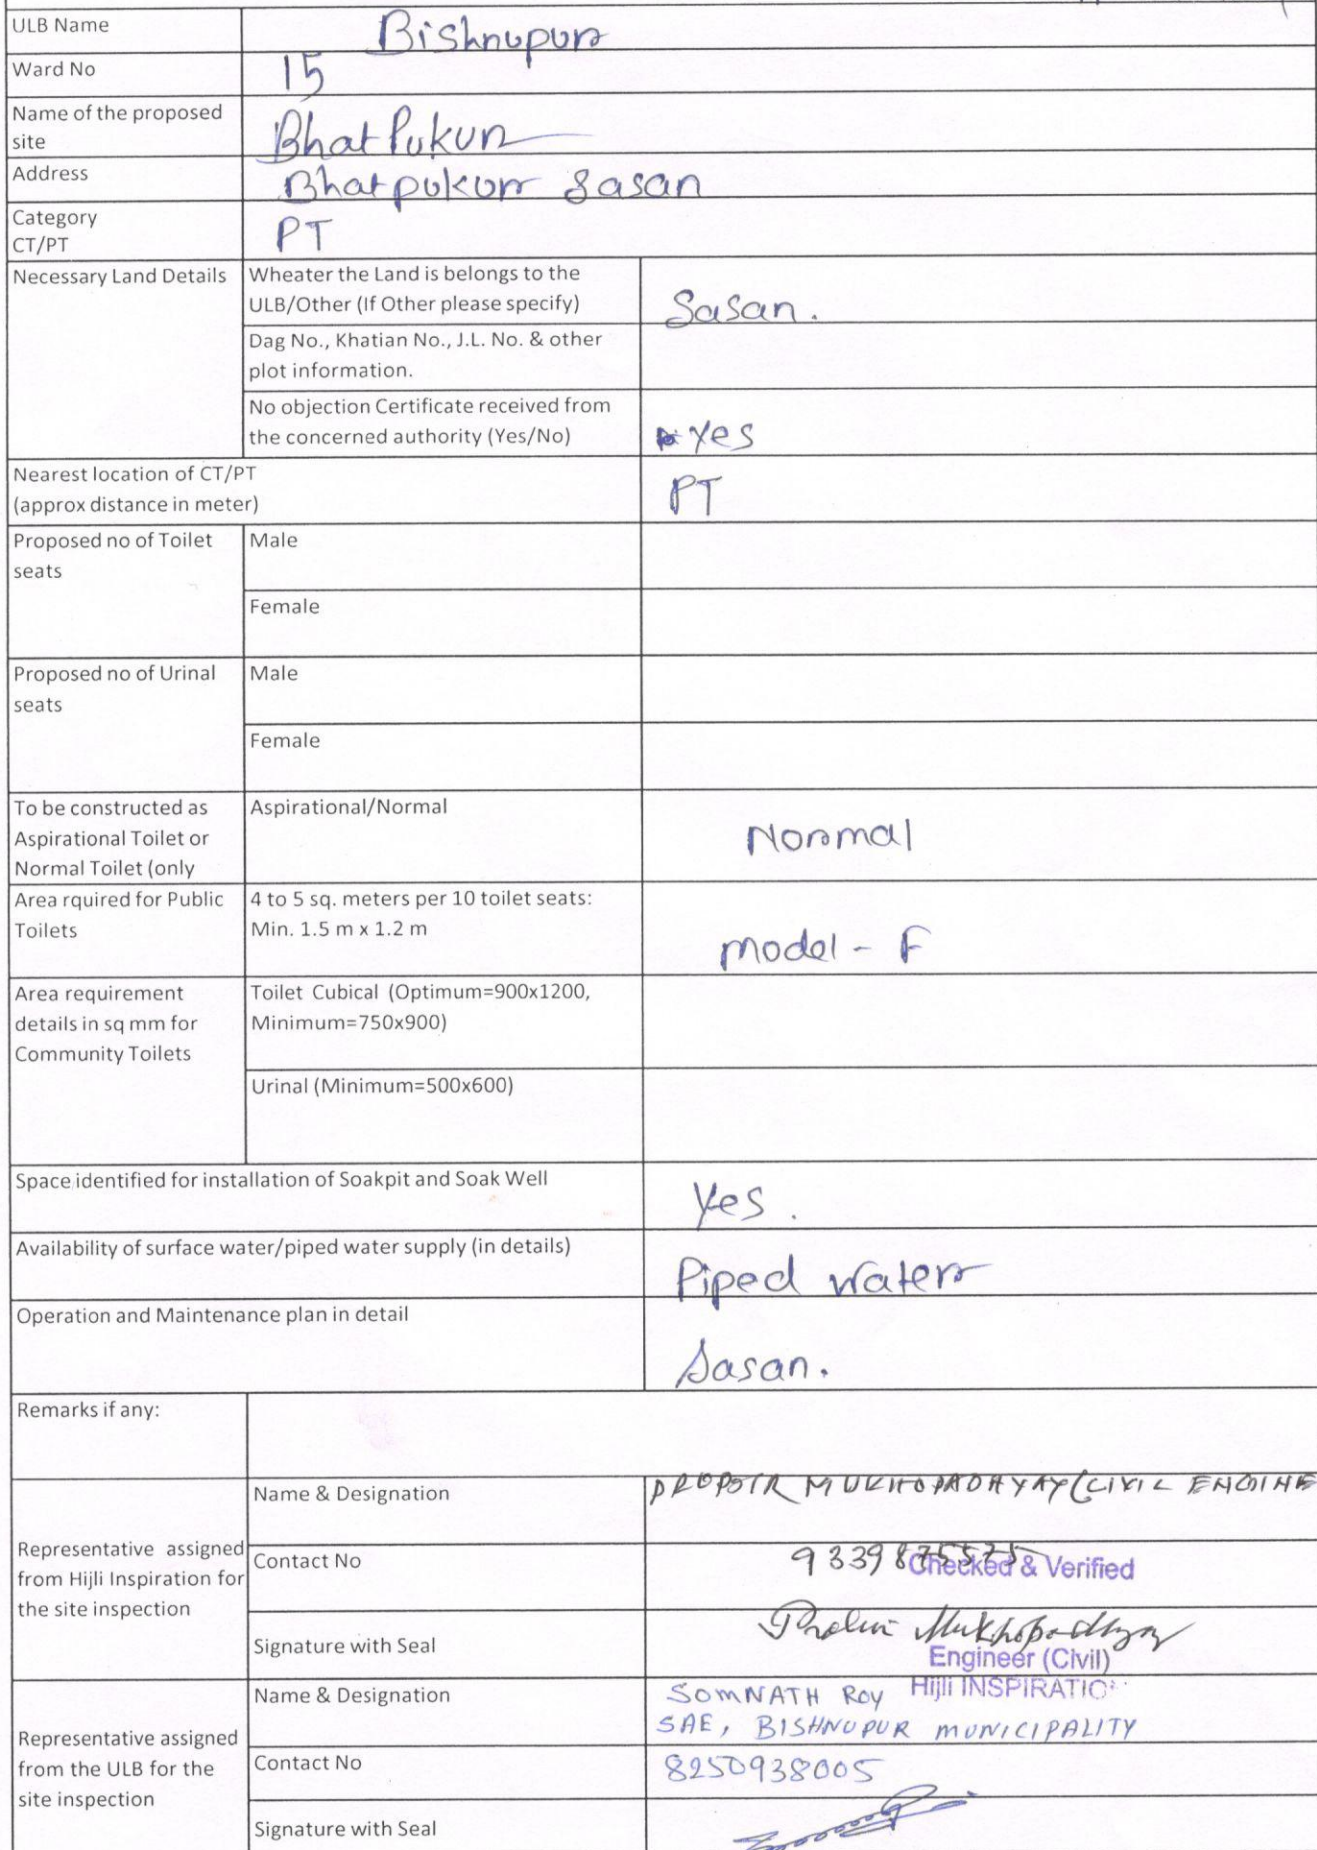 ULB Name
Bishnupur
Ward No
15
Name of the proposed
site
Bhat Pukur
Address
Bhatpukur Sasan
Category
CT/PT
PT
Necessary Land Details
Wheater the Land is belongs to the
ULB/Other (If Other please specify)
Sasan.
Dag No., Khatian No., J.L. No. & other
plot information.
No objection Certificate received from
the concerned authority (Yes/No)
Yes
Nearest location of CT/PT
(approx distance in meter)
PT
Proposed no of Toilet
seats
Male
Female
Proposed no of Urinal
seats
Male
Female
To be constructed as
Aspirational Toilet or
Normal Toilet (only
Aspirational/Normal
Normal
Area rquired for Public
Toilets
4 to 5 sq. meters per 10 toilet seats:
Min. 1.5 m x 1.2 m
model - F
Area requirement
details in sq mm for
Community Toilets
Toilet Cubical (Optimum=900x1200,
Minimum=750x900)
Urinal (Minimum=500x600)
Space identified for installation of Soakpit and Soak Well
Yes.
Availability of surface water/piped water supply (in details)
Piped water
Operation and Maintenance plan in detail
Sasan.
Remarks if any:
Representative assigned
from Hijli Inspiration for
the site inspection
Name & Designation
MUKHOPADHYAY (CIVIL ENGINE
Contact No
9339875575
Checked & Verified
Signature with Seal
Mukhopadhyay
Engineer (Civil)
Hijli INSPIRATIO
Representative assigned
from the ULB for the
site inspection
Name & Designation
SOMNATH ROY
SAE, BISHNUPUR MUNICIPALITY
Contact No
8250938005
Signature with Seal